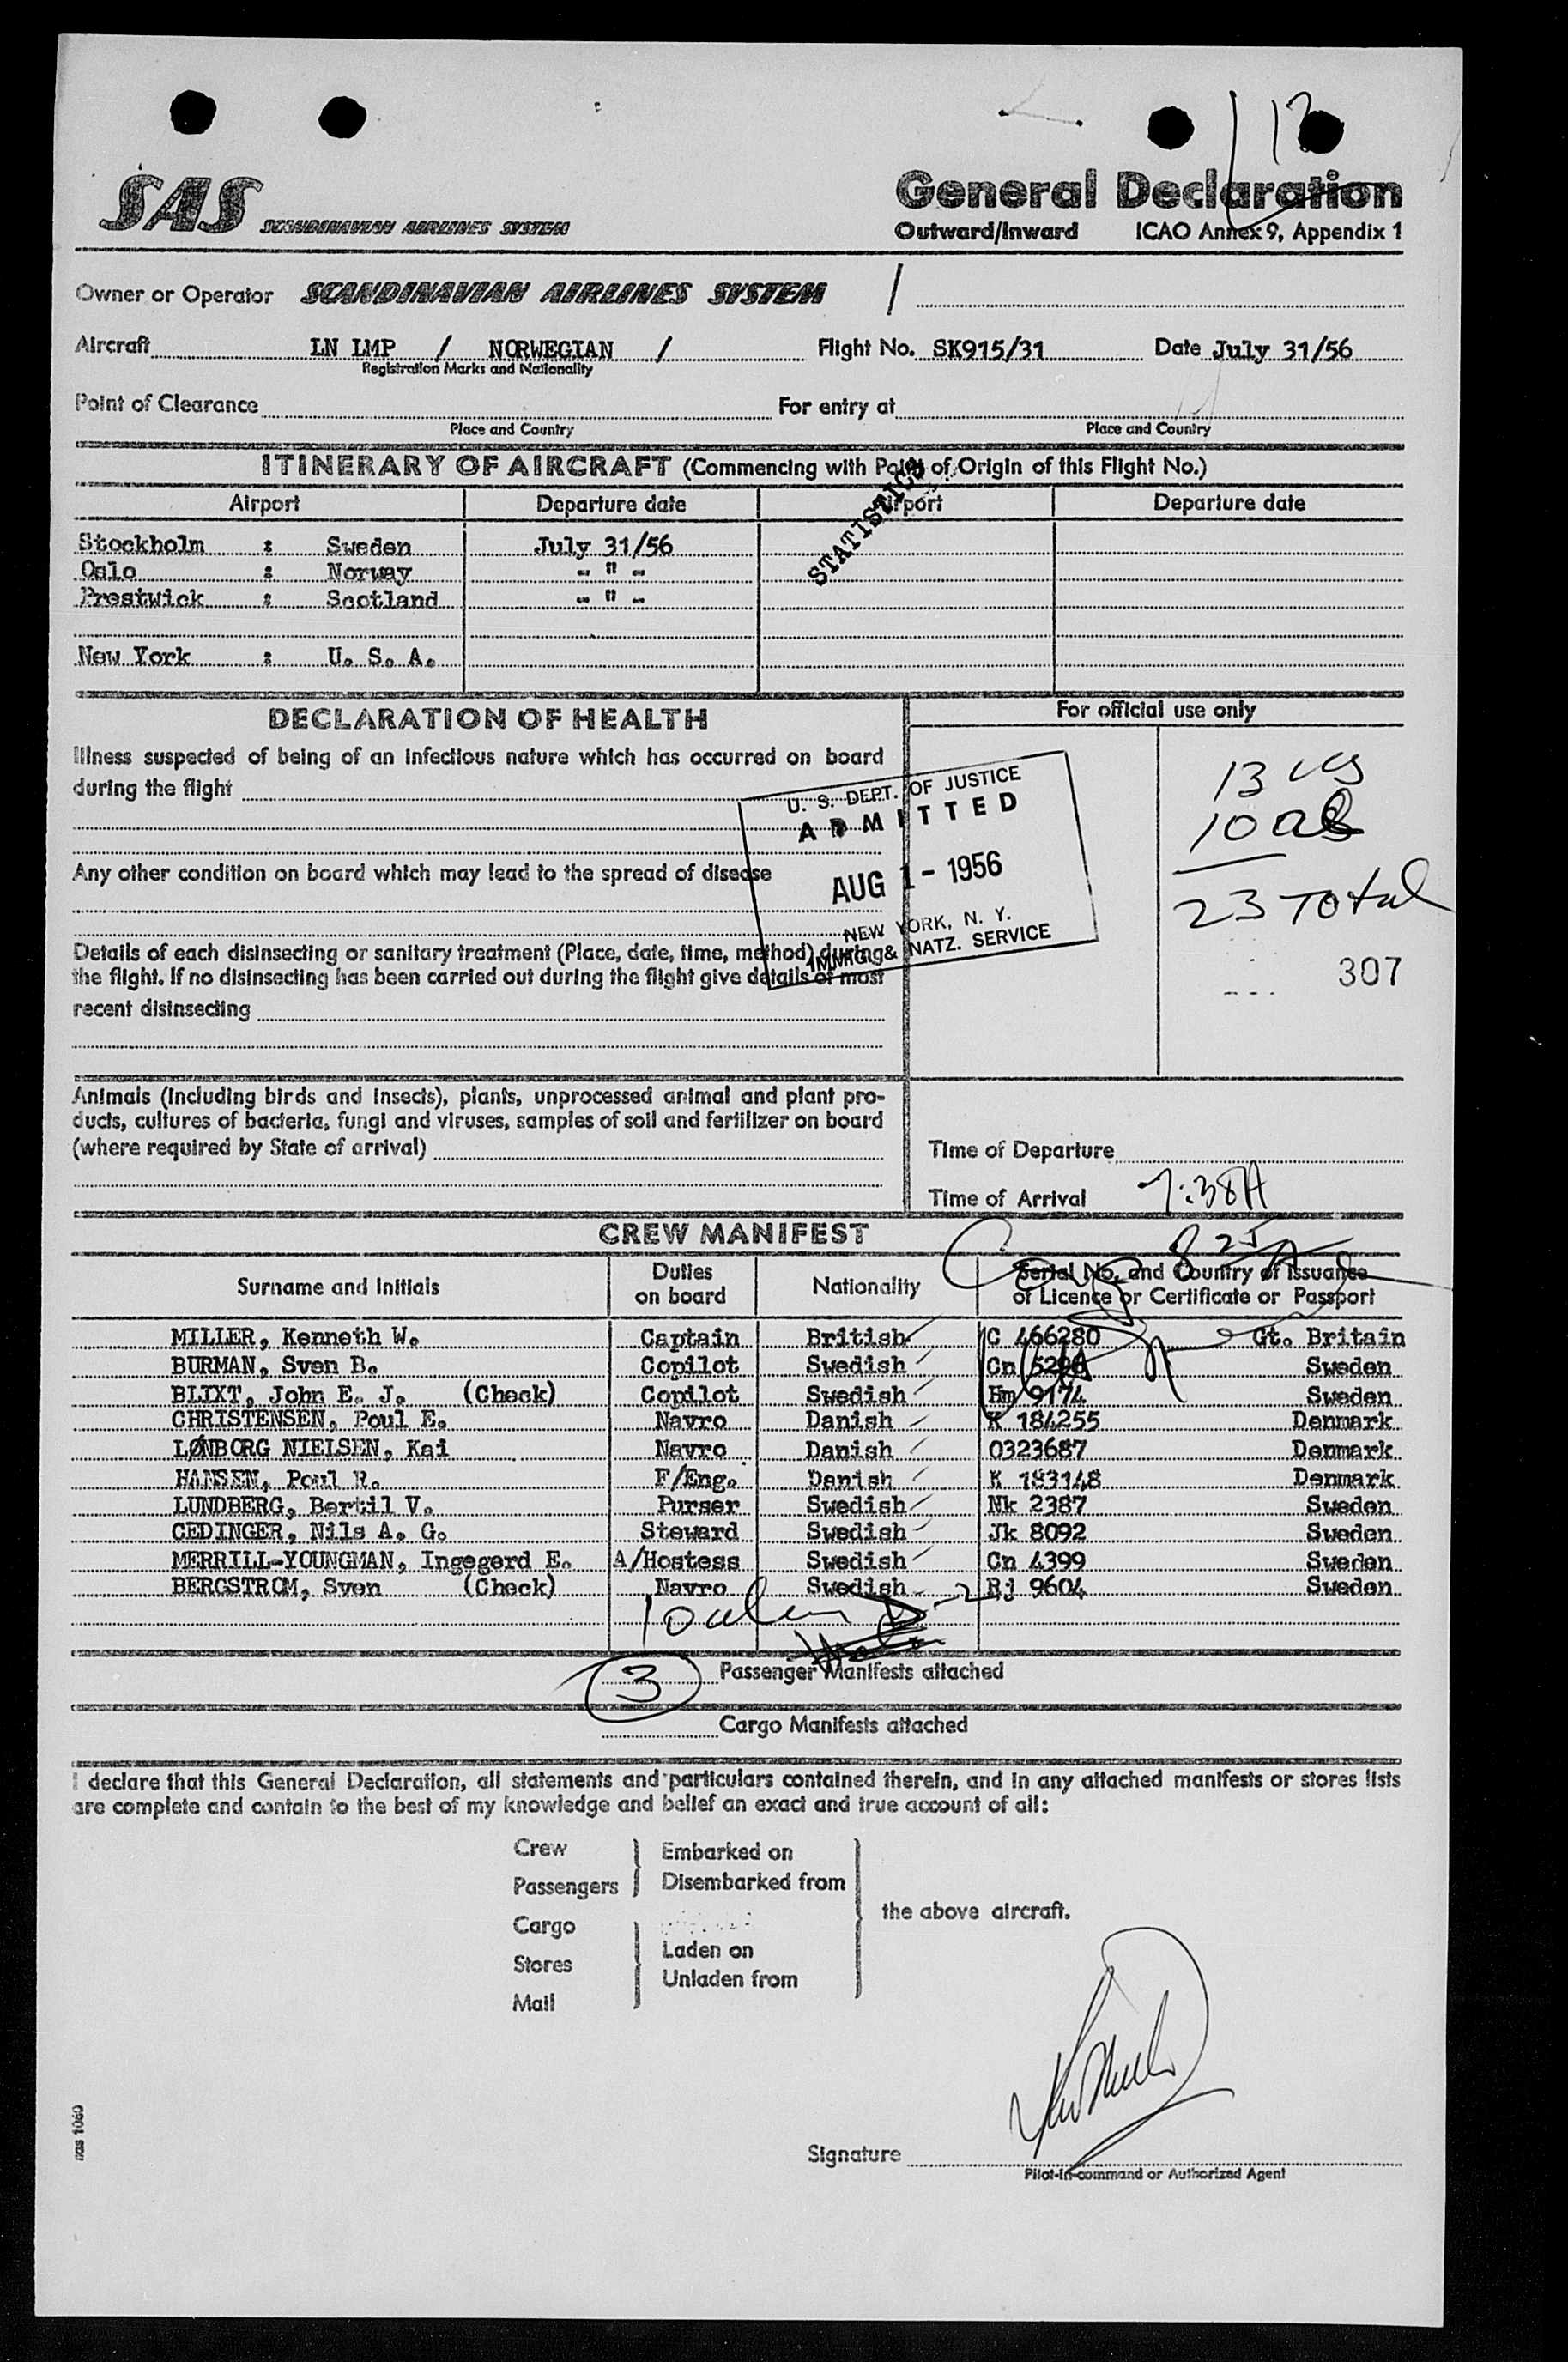 13
SAS SCANDINAVIAN AIRLINES SYSTEM
General Declaration
Outward/Inward ICAO Annex 9, Appendix 1
Owner or Operator SCANDINAVIAN AIRLINES SYSTEM /
Aircraft LN LMP / NORWEGIAN / Flight No. SK915/31 Date July 31/56
Registration Marks and Nationality
Point of Clearance For entry at
Place and Country Place and Country
ITINERARY OF AIRCRAFT (Commencing with Point of Origin of this Flight No.)
Airport Departure date Airport Departure date
STATISTICS
Stockholm : Sweden July 31/56
Oslo : Norway - " -
Prestwick : Scotland - " -
New York : U. S. A.
DECLARATION OF HEALTH
Illness suspected of being of an infectious nature which has occurred on board
during the flight
Any other condition on board which may lead to the spread of disease
Details of each disinsecting or sanitary treatment (Place, date, time, method) during
the flight. If no disinsecting has been carried out during the flight give details of most
recent disinsecting
For official use only
U. S. DEPT. OF JUSTICE
ADMITTED
AUG 1 - 1956
NEW YORK, N. Y.
IMMIG. & NATZ. SERVICE
13
10
23 Total
307
Animals (including birds and insects), plants, unprocessed animal and plant pro-
ducts, cultures of bacteria, fungi and viruses, samples of soil and fertilizer on board
(where required by State of arrival)
Time of Departure
Time of Arrival 7:38A
825A
CREW MANIFEST
Surname and Initials Duties on board Nationality Serial No. and Country of Issuance of Licence or Certificate or Passport
MILLER, Kenneth W. Captain British C 466280 Gt. Britain
BURMAN, Sven B. Copilot Swedish Cn Sweden
BLIXT, John E. J. (Check) Copilot Swedish Hm 9174 Sweden
CHRISTENSEN, Poul E. Navro Danish K 184255 Denmark
LØNBORG NIELSEN, Kai Navro Danish 0323687 Denmark
HANSEN, Poul R. F/Eng. Danish K 183148 Denmark
LUNDBERG, Bertil V. Purser Swedish Nk 2387 Sweden
CEDINGER, Nils A. G. Steward Swedish Jk 8092 Sweden
MERRILL-YOUNGMAN, Ingegerd E. A/Hostess Swedish Cn 4399 Sweden
BERGSTROM, Sven (Check) Navro Swedish Rj 9604 Sweden
10 alien D-2
3 Passenger Manifests attached
Cargo Manifests attached
I declare that this General Declaration, all statements and particulars contained therein, and in any attached manifests or stores lists
are complete and contain to the best of my knowledge and belief an exact and true account of all:
Crew
Passengers
Cargo
Stores
Mail
Embarked on
Disembarked from
Laden on
Unladen from
the above aircraft.
Signature
Pilot-in-command or Authorized Agent
sas 1060